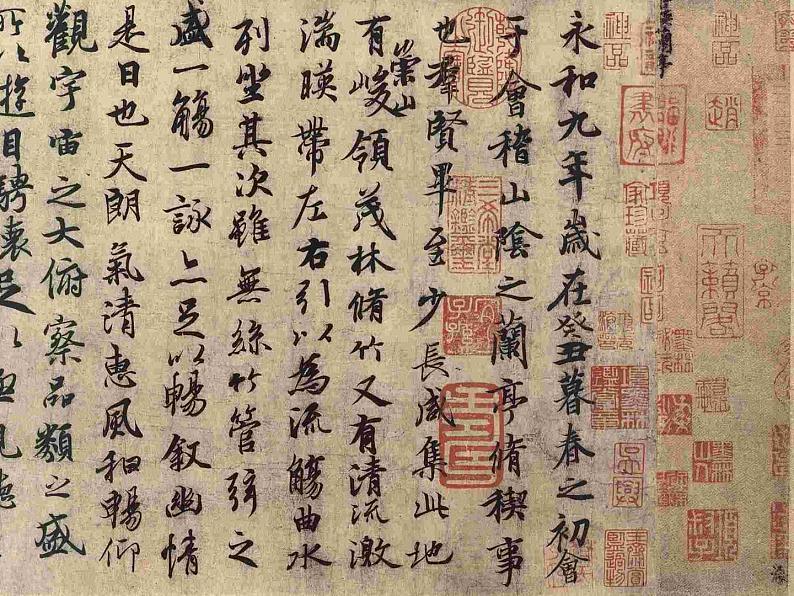 神品
子京
趙
天籟閣
神品
書府
吳興
永和九年歲在癸丑暮春之初會
于會稽山陰之蘭亭脩稧事
也羣賢畢至少長咸集此地
有崇山峻領茂林脩竹又有清流激
湍暎帶左右引以為流觴曲水
列坐其次雖無絲竹管弦之
盛一觴一詠亦足以暢叙幽情
是日也天朗氣清惠風和暢仰
觀宇宙之大俯察品類之盛
所以遊目騁懷足以